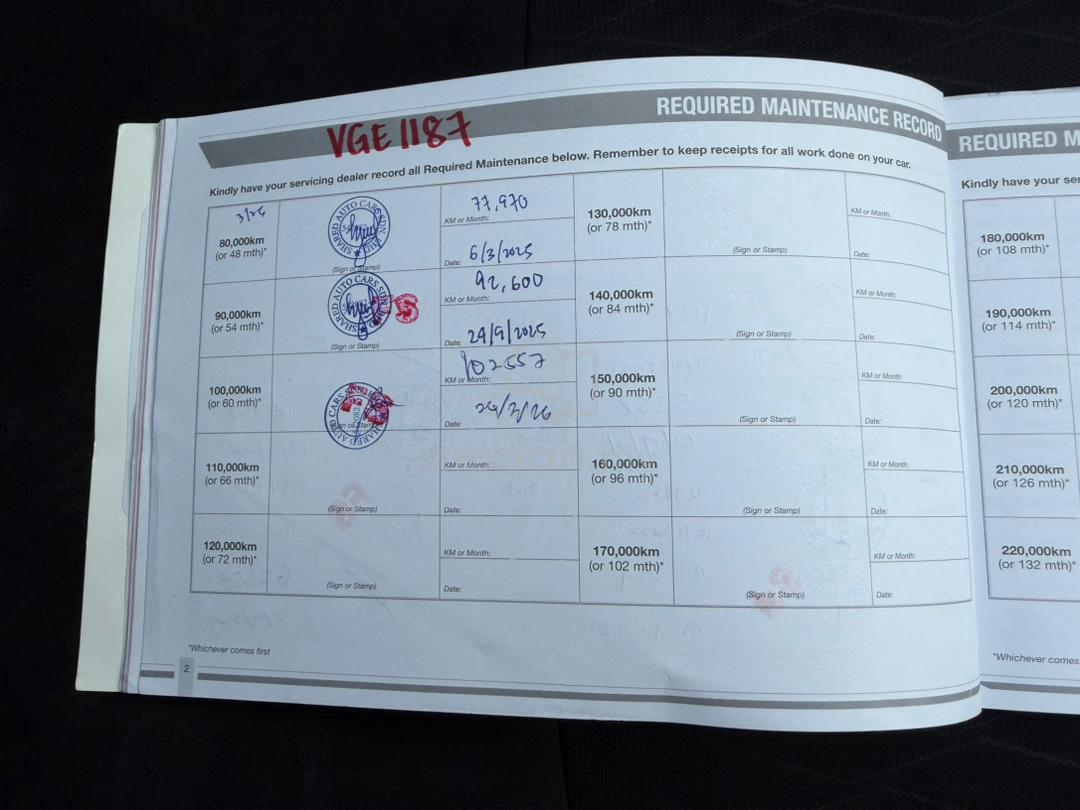 REQUIRED MAINTENANCE RECORD
VGE 1187
Kindly have your servicing dealer record all Required Maintenance below. Remember to keep receipts for all work done on your car.
80,000km
(or 48 mth)*
SHARED AUTO CARS SDN. BHD
(Sign or Stamp)
KM or Month:
77,970
Date:
6/3/2025
90,000km
(or 54 mth)*
SHARED AUTO CARS SDN
(Sign or Stamp)
KM or Month:
92,600
Date:
29/9/2025
100,000km
(or 60 mth)*
SHARED AUTO CARS SDN
KM or Month:
102557
Date:
110,000km
(or 66 mth)*
(Sign or Stamp)
KM or Month:
Date:
120,000km
(or 72 mth)*
(Sign or Stamp)
KM or Month:
Date:
130,000km
(or 78 mth)*
(Sign or Stamp)
KM or Month:
Date:
140,000km
(or 84 mth)*
(Sign or Stamp)
KM or Month:
Date:
150,000km
(or 90 mth)*
(Sign or Stamp)
KM or Month:
Date:
160,000km
(or 96 mth)*
(Sign or Stamp)
KM or Month:
Date:
170,000km
(or 102 mth)*
(Sign or Stamp)
KM or Month:
Date:
*Whichever comes first
2
REQUIRED M
Kindly have your ser
180,000km
(or 108 mth)*
190,000km
(or 114 mth)*
200,000km
(or 120 mth)*
210,000km
(or 126 mth)*
220,000km
(or 132 mth)*
*Whichever comes